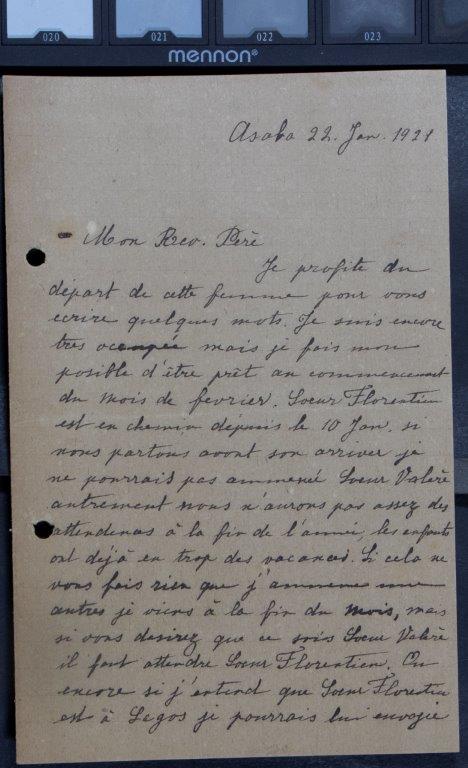 020 021 022 023
mennon®
Asaba 22. Jan. 1921
Mon Rev. Père
Je profite du
départ de cette femme pour vous
ecrire quelques mots. Je suis encore
très occupée mais je fais mon
posible d'être prêt au commencement
du mois de fevrier. Soeur Florentien
est en chemin depuis le 10 Jan. si
nous partons avant son arriver je
ne pourrais pas ammené Soeur Valère
autrement nous n'aurons pas assez des
attendences à la fin de l'année, les enfants
ont déjà en trop des vacances. Si cela ne
vous fais rien que j'ammene une
autres je viens à la fin du mois, mais
si vous desirez que ce sois Soeur Valère
il faut attendre Soeur Florentien. Ou
encore si j'entend que Soeur Florentien
est à Legos je pourrais lui envoyie